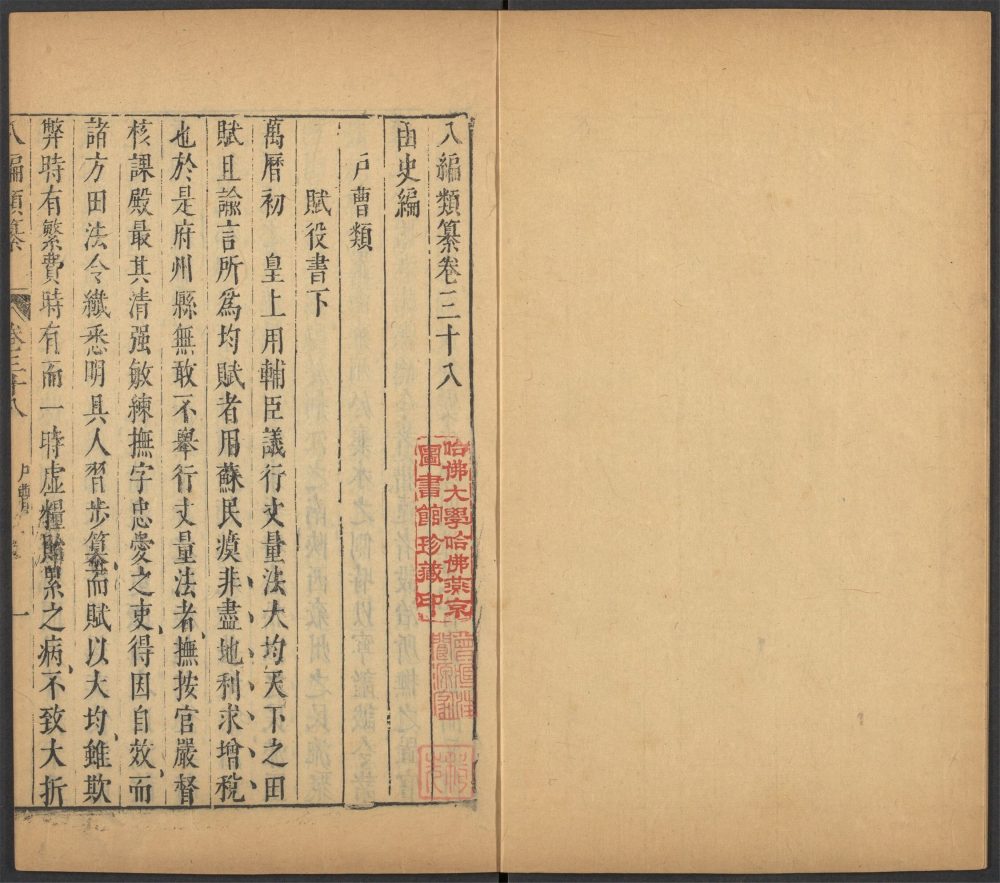 八編類纂卷三十八
函史編
戶曹類
賦役書下
萬曆初 皇上用輔臣議行丈量法大均天下之田
賦且諭言所爲均賦者用蘇民瘼非盡地利求增稅
也於是府州縣無敢不舉行丈量法者撫按官嚴督
核課殿最其清强敏練撫字忠愛之吏得因自效而
諸方田法令纖悉明具人習步算而賦以大均雖欺
弊時有繁費時有而一時虛糧貽累之病不致大折
八編類纂 卷三十八 戶曹 一
哈佛大學哈佛燕京
圖書館珍藏印